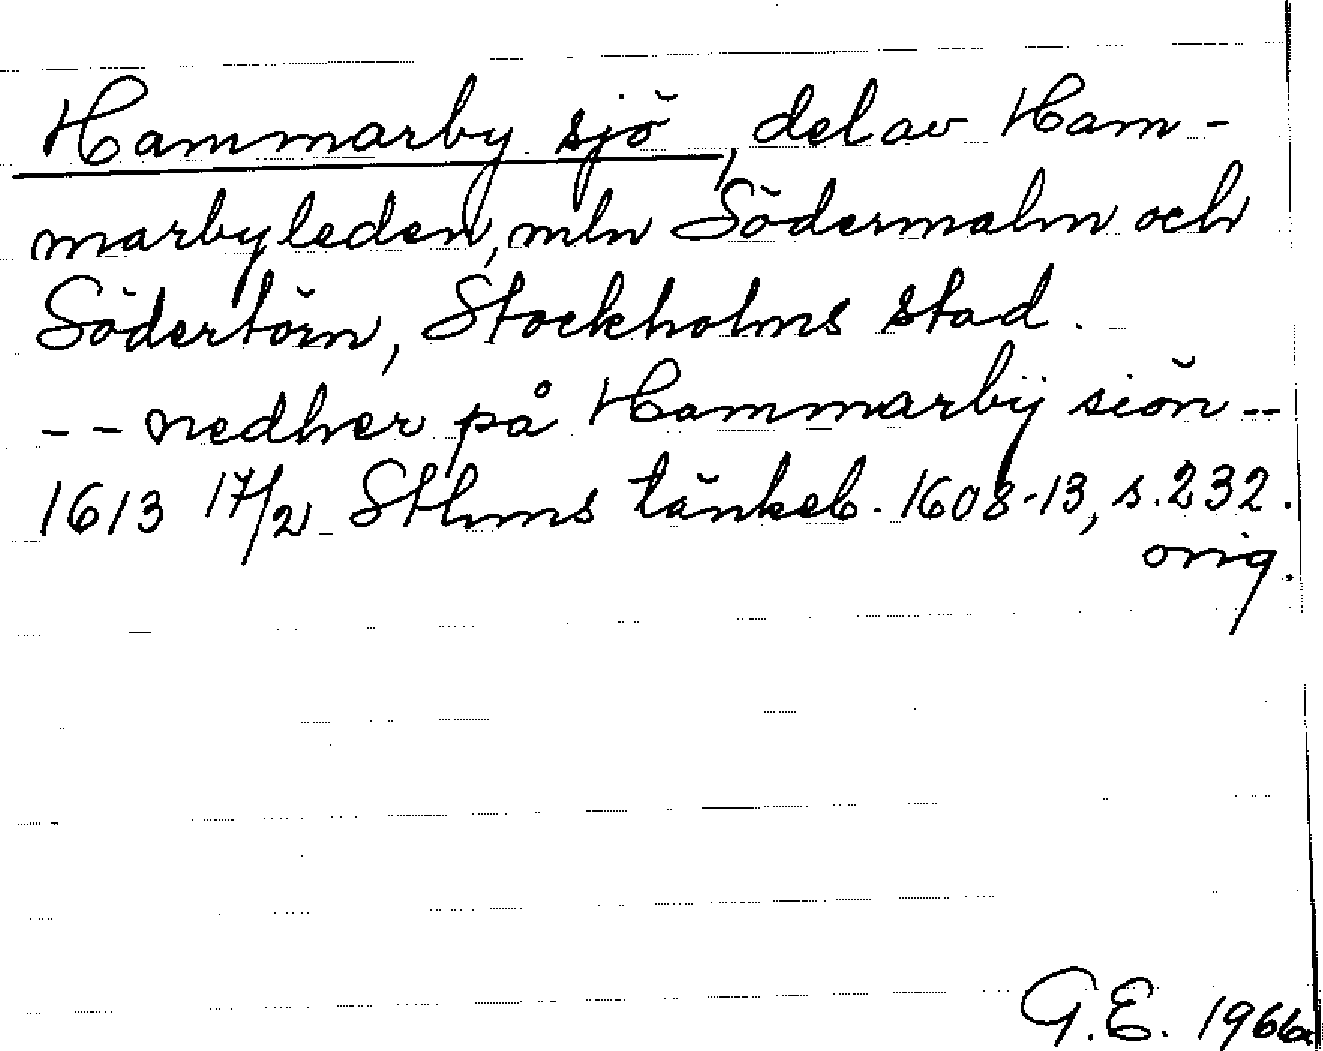 Hammarby sjö, del av Ham-
marbyleden, mln Södermalm och
Södertörn, Stockholms stad.
-- nedher på Hammarbÿ siön --
1613 17/2 Sthms tänkeb. 1608-13, s. 232.
orig.
G.E. 1966